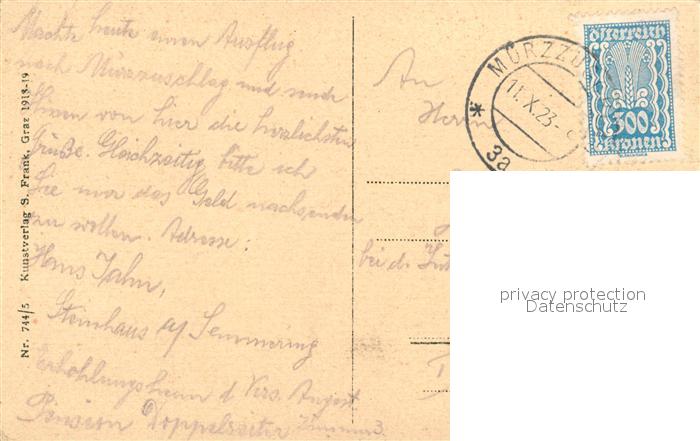 Machte heute einen Ausflug
nach Mürzzuschlag und sende
Ihnen von hier die herzlichsten
Grüße. Gleichzeitig bitte ich
Sie mir das Geld nachsenden
zu wollen. Adresse:
Hans Jahn,
Steinhaus a/ Semmering
Erhohlungsheim d Vers. Angest
Pension Doppelreiter Zimmer 3.
Nr. 744/5 Kunstverlag S. Frank, Graz 1918-19
An
Herrn
bei d.
MÜRZZU
11.X.23
3a
Österreich
300
Kronen
privacy protection
Datenschutz